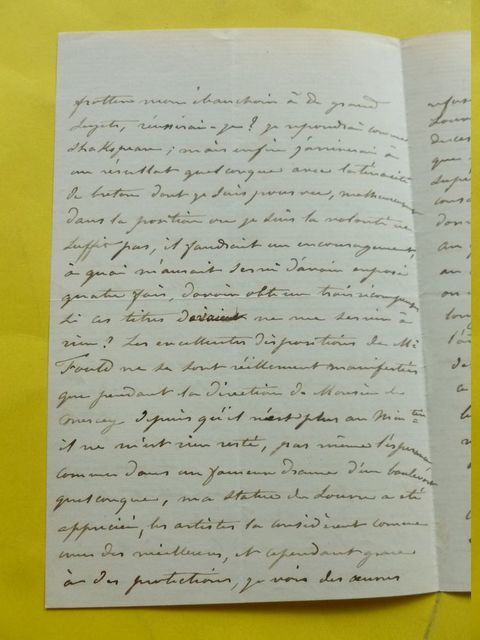 frotter mon ébauchoir à de grand
sujets, réussirai-je? je repondrai comme
Shakspeare; mais enfin j'arriverai à
un résultat quelconque avec la ténacité
de breton dont je suis pourvu, malheureusement
dans la position ou je suis la volonté ne
suffit pas, il faudrait un encouragement,
à quoi m'aurait servi d'avoir exposé
quatre fois, d'avoir obtenu trois récompenses
si ces titres devaient ne me servir à
rien? Les excellentes dispositions de Mr
Fould ne se sont réellement manifestées
que pendant la direction de Monsieur de
Mercey depuis qu'il n'est plus au Ministère
il ne m'est rien resté, pas même l'espérance
comme dans un fameux drame d'un boulevart
quelconque, ma statue du Louvre a été
appréciée, les artistes la considèrent comme
une des meilleures, et cependant grace
à des protections, je vois des œuvres